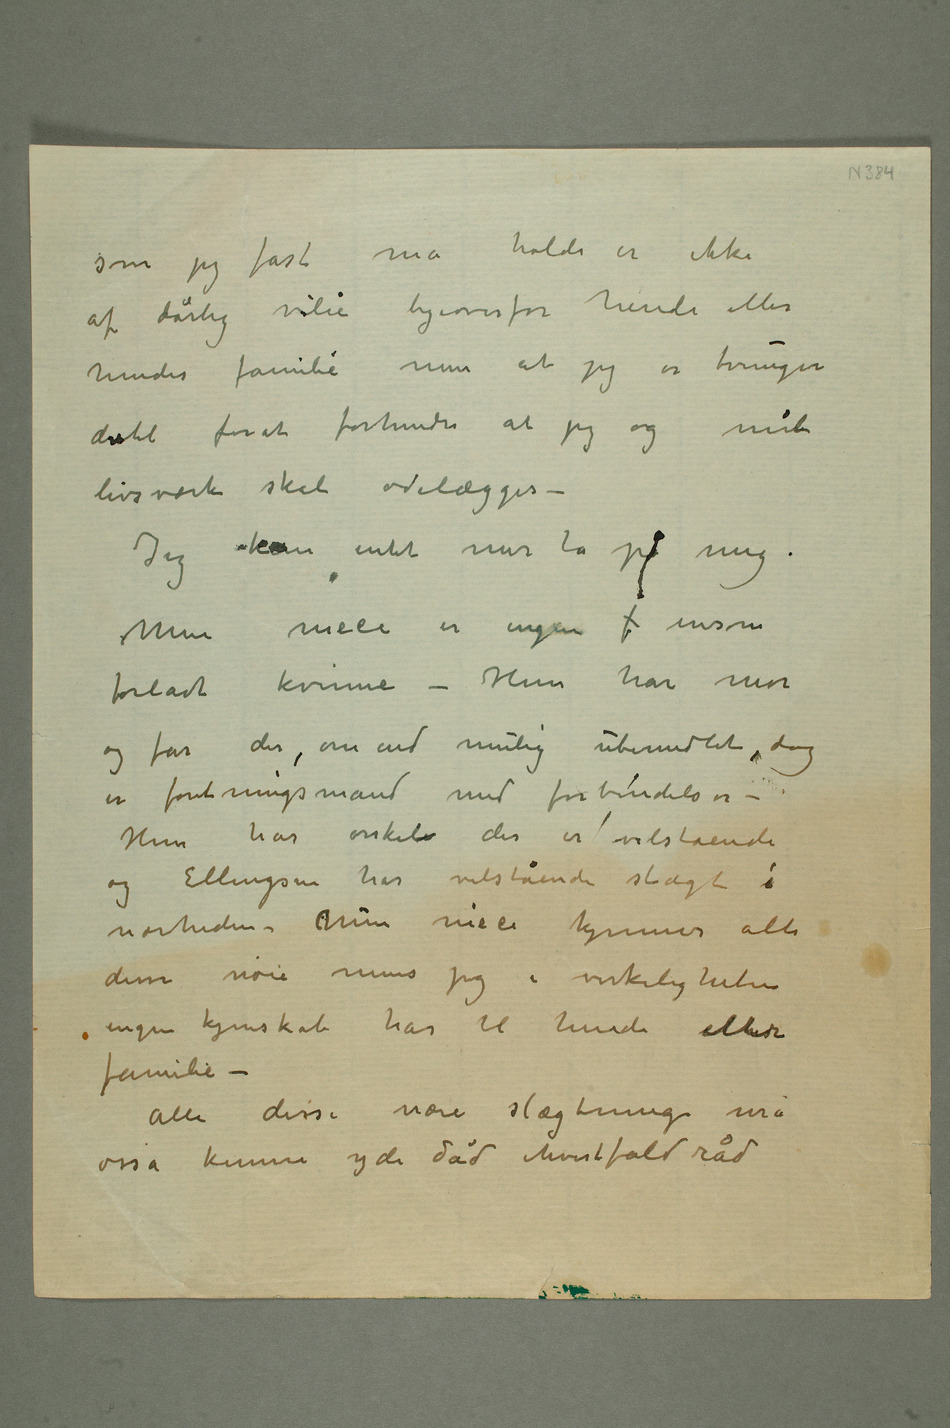 N 384
som jeg fast må holde er ikke
af dårlig vilie ligeoverfor hende eller
hendes familie men at jeg er tvungen
dertil forat forhindre at jeg og mit
livsværk skal ødelægges –
Jeg kan intet mer ta på mig.
Min niece er ingen f ensom
forladt kvinne – Hun har mor
og far der, om end mulig ubemidlet, dog
er foretningsmand med forbindelser –
Hun har onkel der er velstående
og Ellingsen har velstående slægt i
nærheden. Min niece kjenner alle
disse nøie mens jeg i virkeligheten
ingen kjenskab har til hende eller
familie –
Alle disse nære slægtninge må
osså kunne yde dåd ihvertfald råd